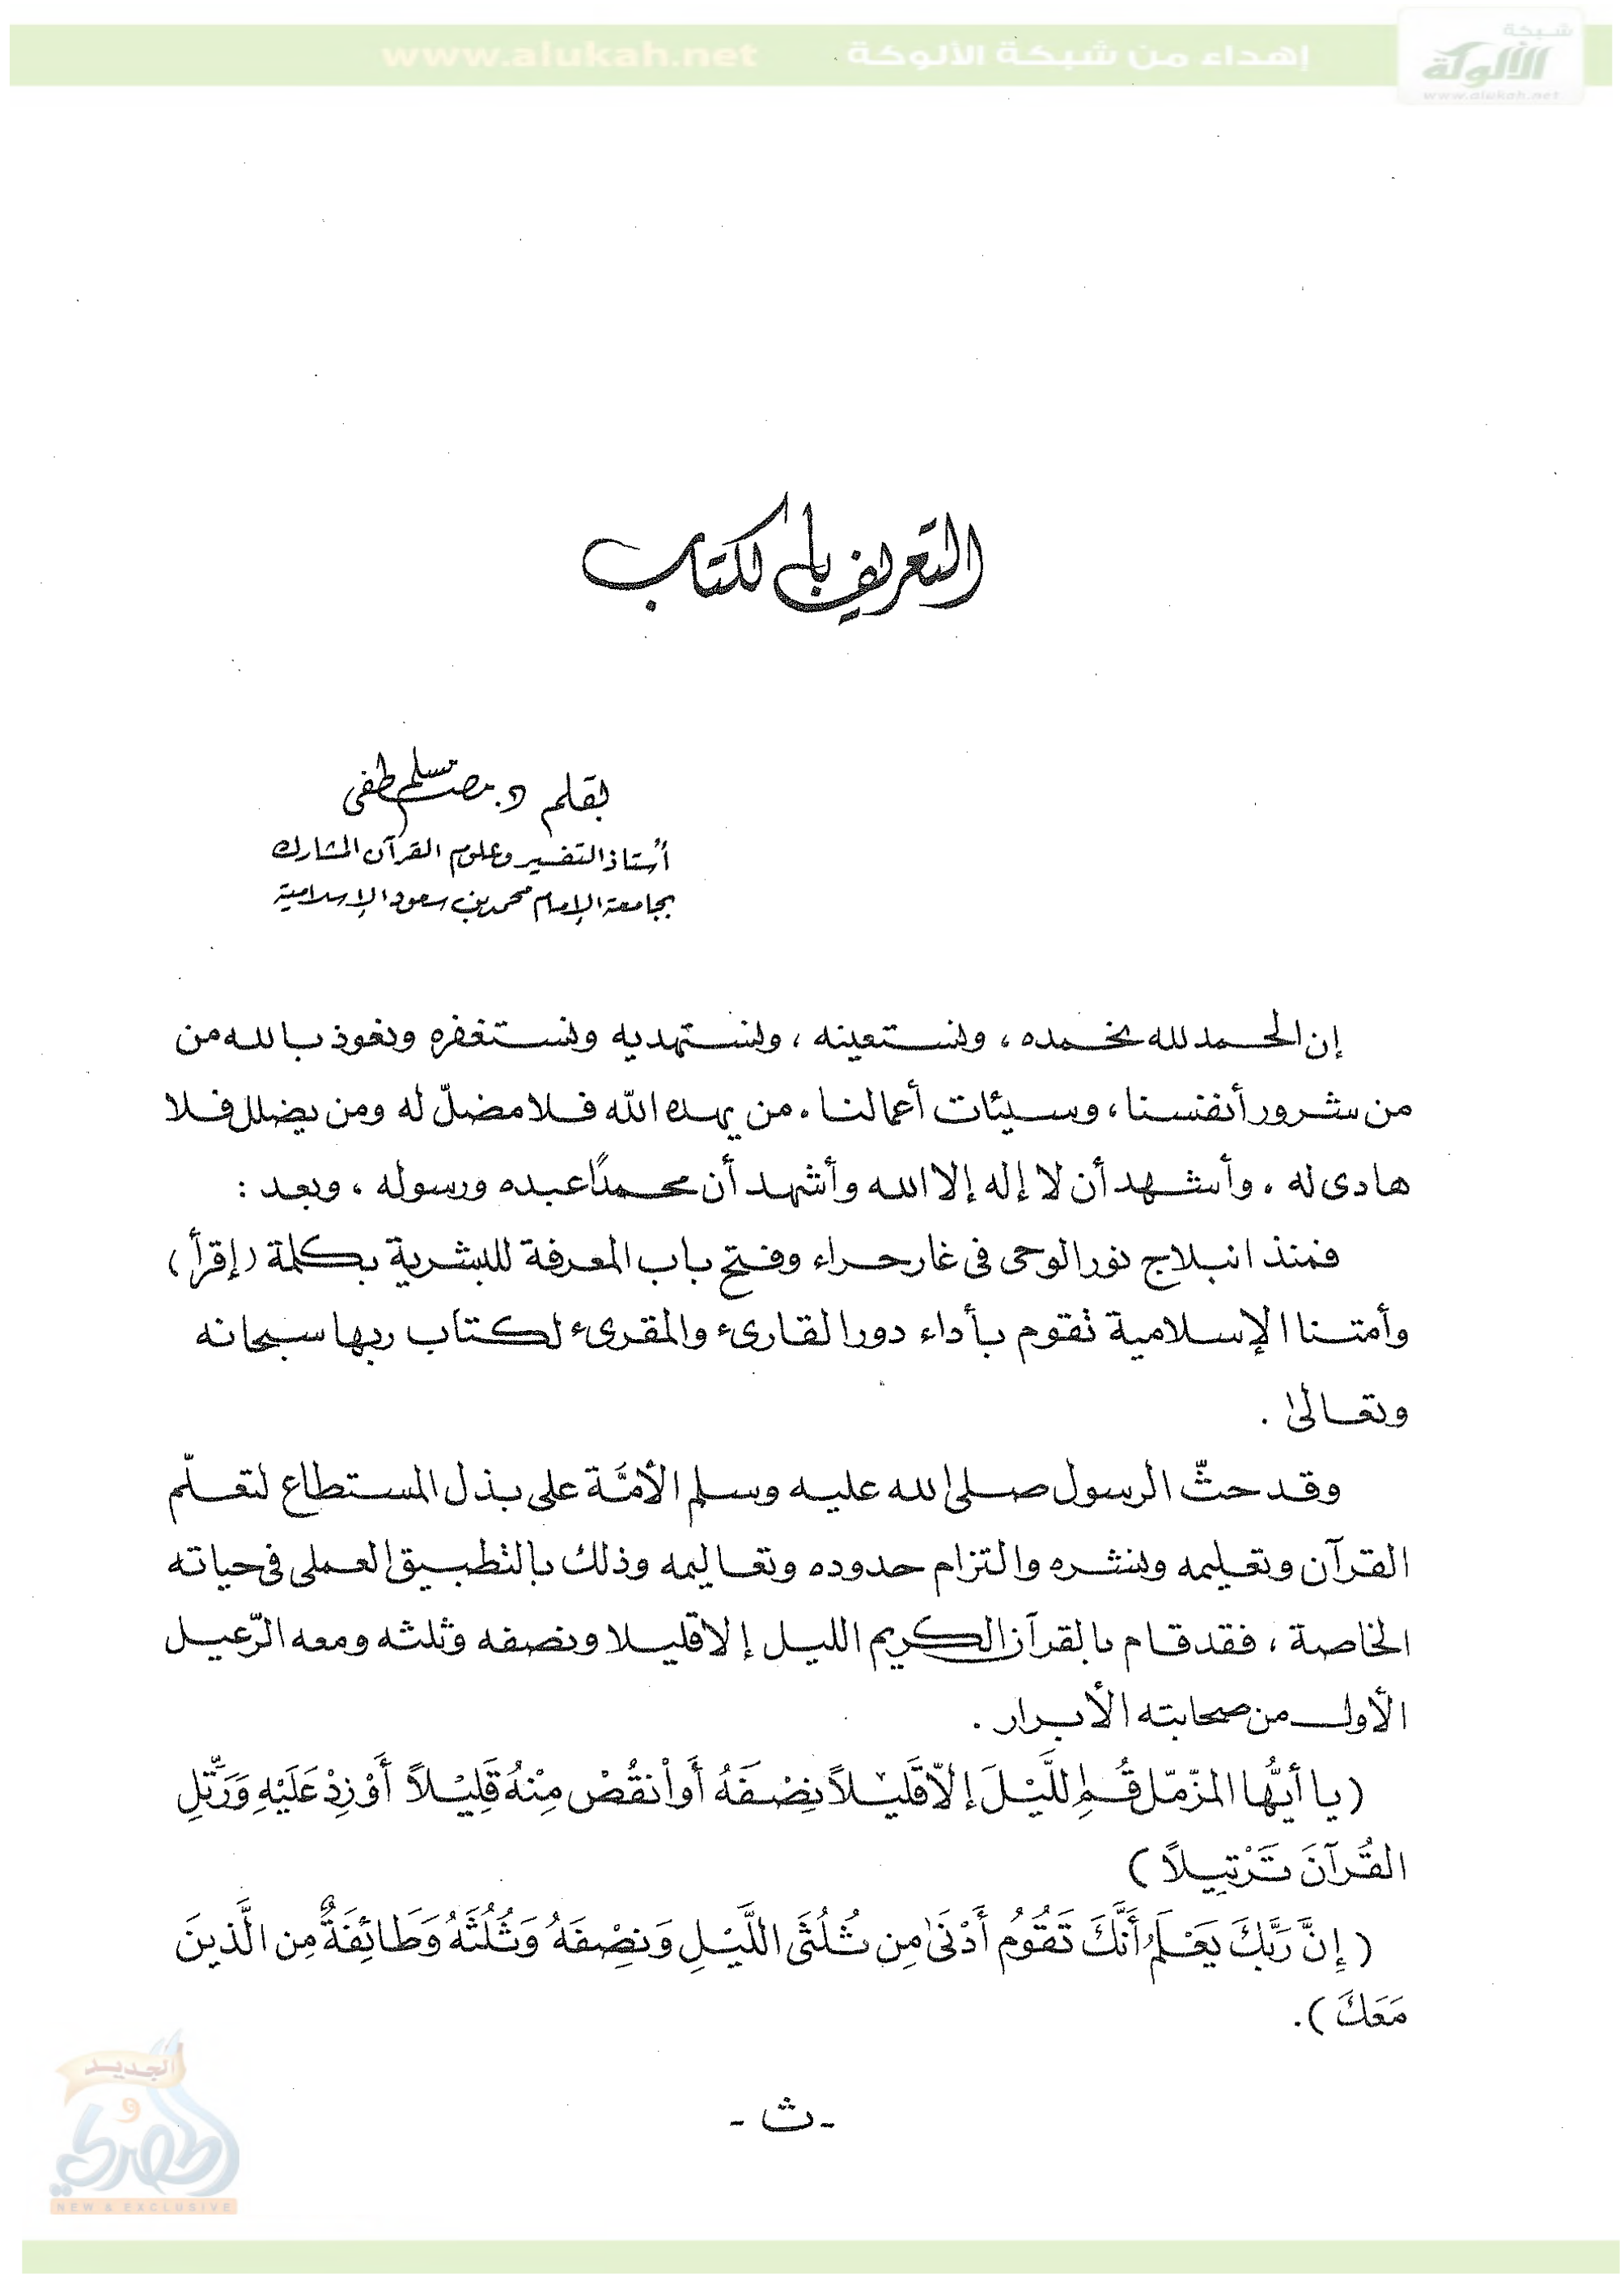 شبكة
الألوكة
www.alukah.net
إهداء من شبكة الألوكة www.alukah.net
التعريف بالكتاب
بقلم د. مصطفى مسلم
أستاذ التفسير وعلوم القرآن المشارك
بجامعة الإمام محمد بن سعود الإسلامية
إن الحمد لله نحمده ، ونستعينه ، ونستهديه ونستغفره ونعوذ بالله من
من شرور أنفسنا ، وسيئات أعمالنا . من يهده الله فلا مضلّ له ومن يضلل فلا
هادى له . وأشهد أن لا إله إلا الله وأشهد أن محمدًا عبده ورسوله ، وبعد :
فمنذ انبلاج نور الوحى فى غار حراء وفتح باب المعرفة للبشرية بكلمة (إقرأ)
وأمتنا الإسلامية تقوم بأداء دور القارىء والمقرىء لكتاب ربها سبحانه
وتعالىٰ .
وقد حثّ الرسول صلى الله عليه وسلم الأمَّة على بذل المستطاع لتعلّم
القرآن وتعليمه ونشره والتزام حدوده وتعاليمه وذلك بالتطبيق العملى فى حياته
الخاصة ، فقد قام بالقرآن الكريم الليل إلا قليلا ونصفه وثلثه ومعه الرّعيل
الأول من صحابته الأبرار .
(يا أيُّها المزّمّل قُمِ اللَّيْلَ إلاّ قَليلاً نِصْفَهُ أَو اْنقُصْ مِنْهُ قَلِيْلاً أَوْ زِدْ عَلَيْهِ وَرَتِّلِ
القُرآنَ تَرْتِيلاً )
( إِنَّ رَبَّكَ يَعْلَمُ أَنَّكَ تَقُوُم أَدْنَىٰ مِن ثُلُثَى اللَّيْلِ وَنِصْفَهُ وَثُلُثَهُ وَطَائِفَةٌ مِن الَّذينَ
مَعَكَ ) .
- ث -
الجديد
و
الحصري
NEW & EXCLUSIVE